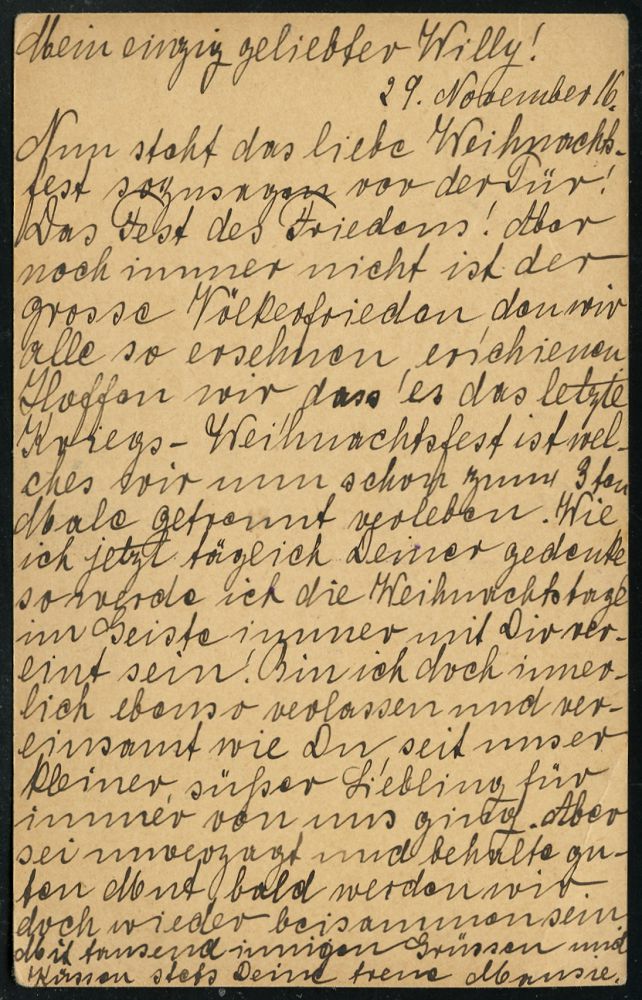 Mein einzig geliebter Willy!
29. November 16.
Nun steht das liebe Weihnachts-
fest sozusagen vor der Tür!
Das Fest des Friedens! Aber
noch immer nicht ist der
grosse Völkerfrieden den wir
alle so ersehnen erschienen
Hoffen wir dass es das letzte
Kriegs-Weihnachtsfest ist wel-
ches wir nun schon zum 3ten
Male getrennt verleben. Wie
ich jetzt täglich Deiner gedenke
so werde ich die Weihnachtstage
im Geiste immer mit Dir ver-
eint sein! Bin ich doch inner-
lich ebenso verlassen und ver-
einsamt wie Du seit unser
kleiner, süßer Liebling für
immer von uns ging. Aber
sei unverzagt und behalte gu-
ten Mut, bald werden wir
doch wieder beisammen sein
Mit tausend innigen Grüssen und
Küssen stets Deine treue Mausie.